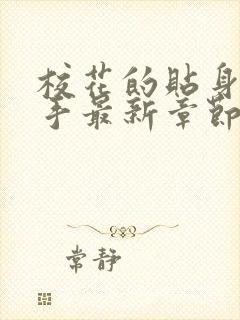 校花的贴身
手最新章節
常静